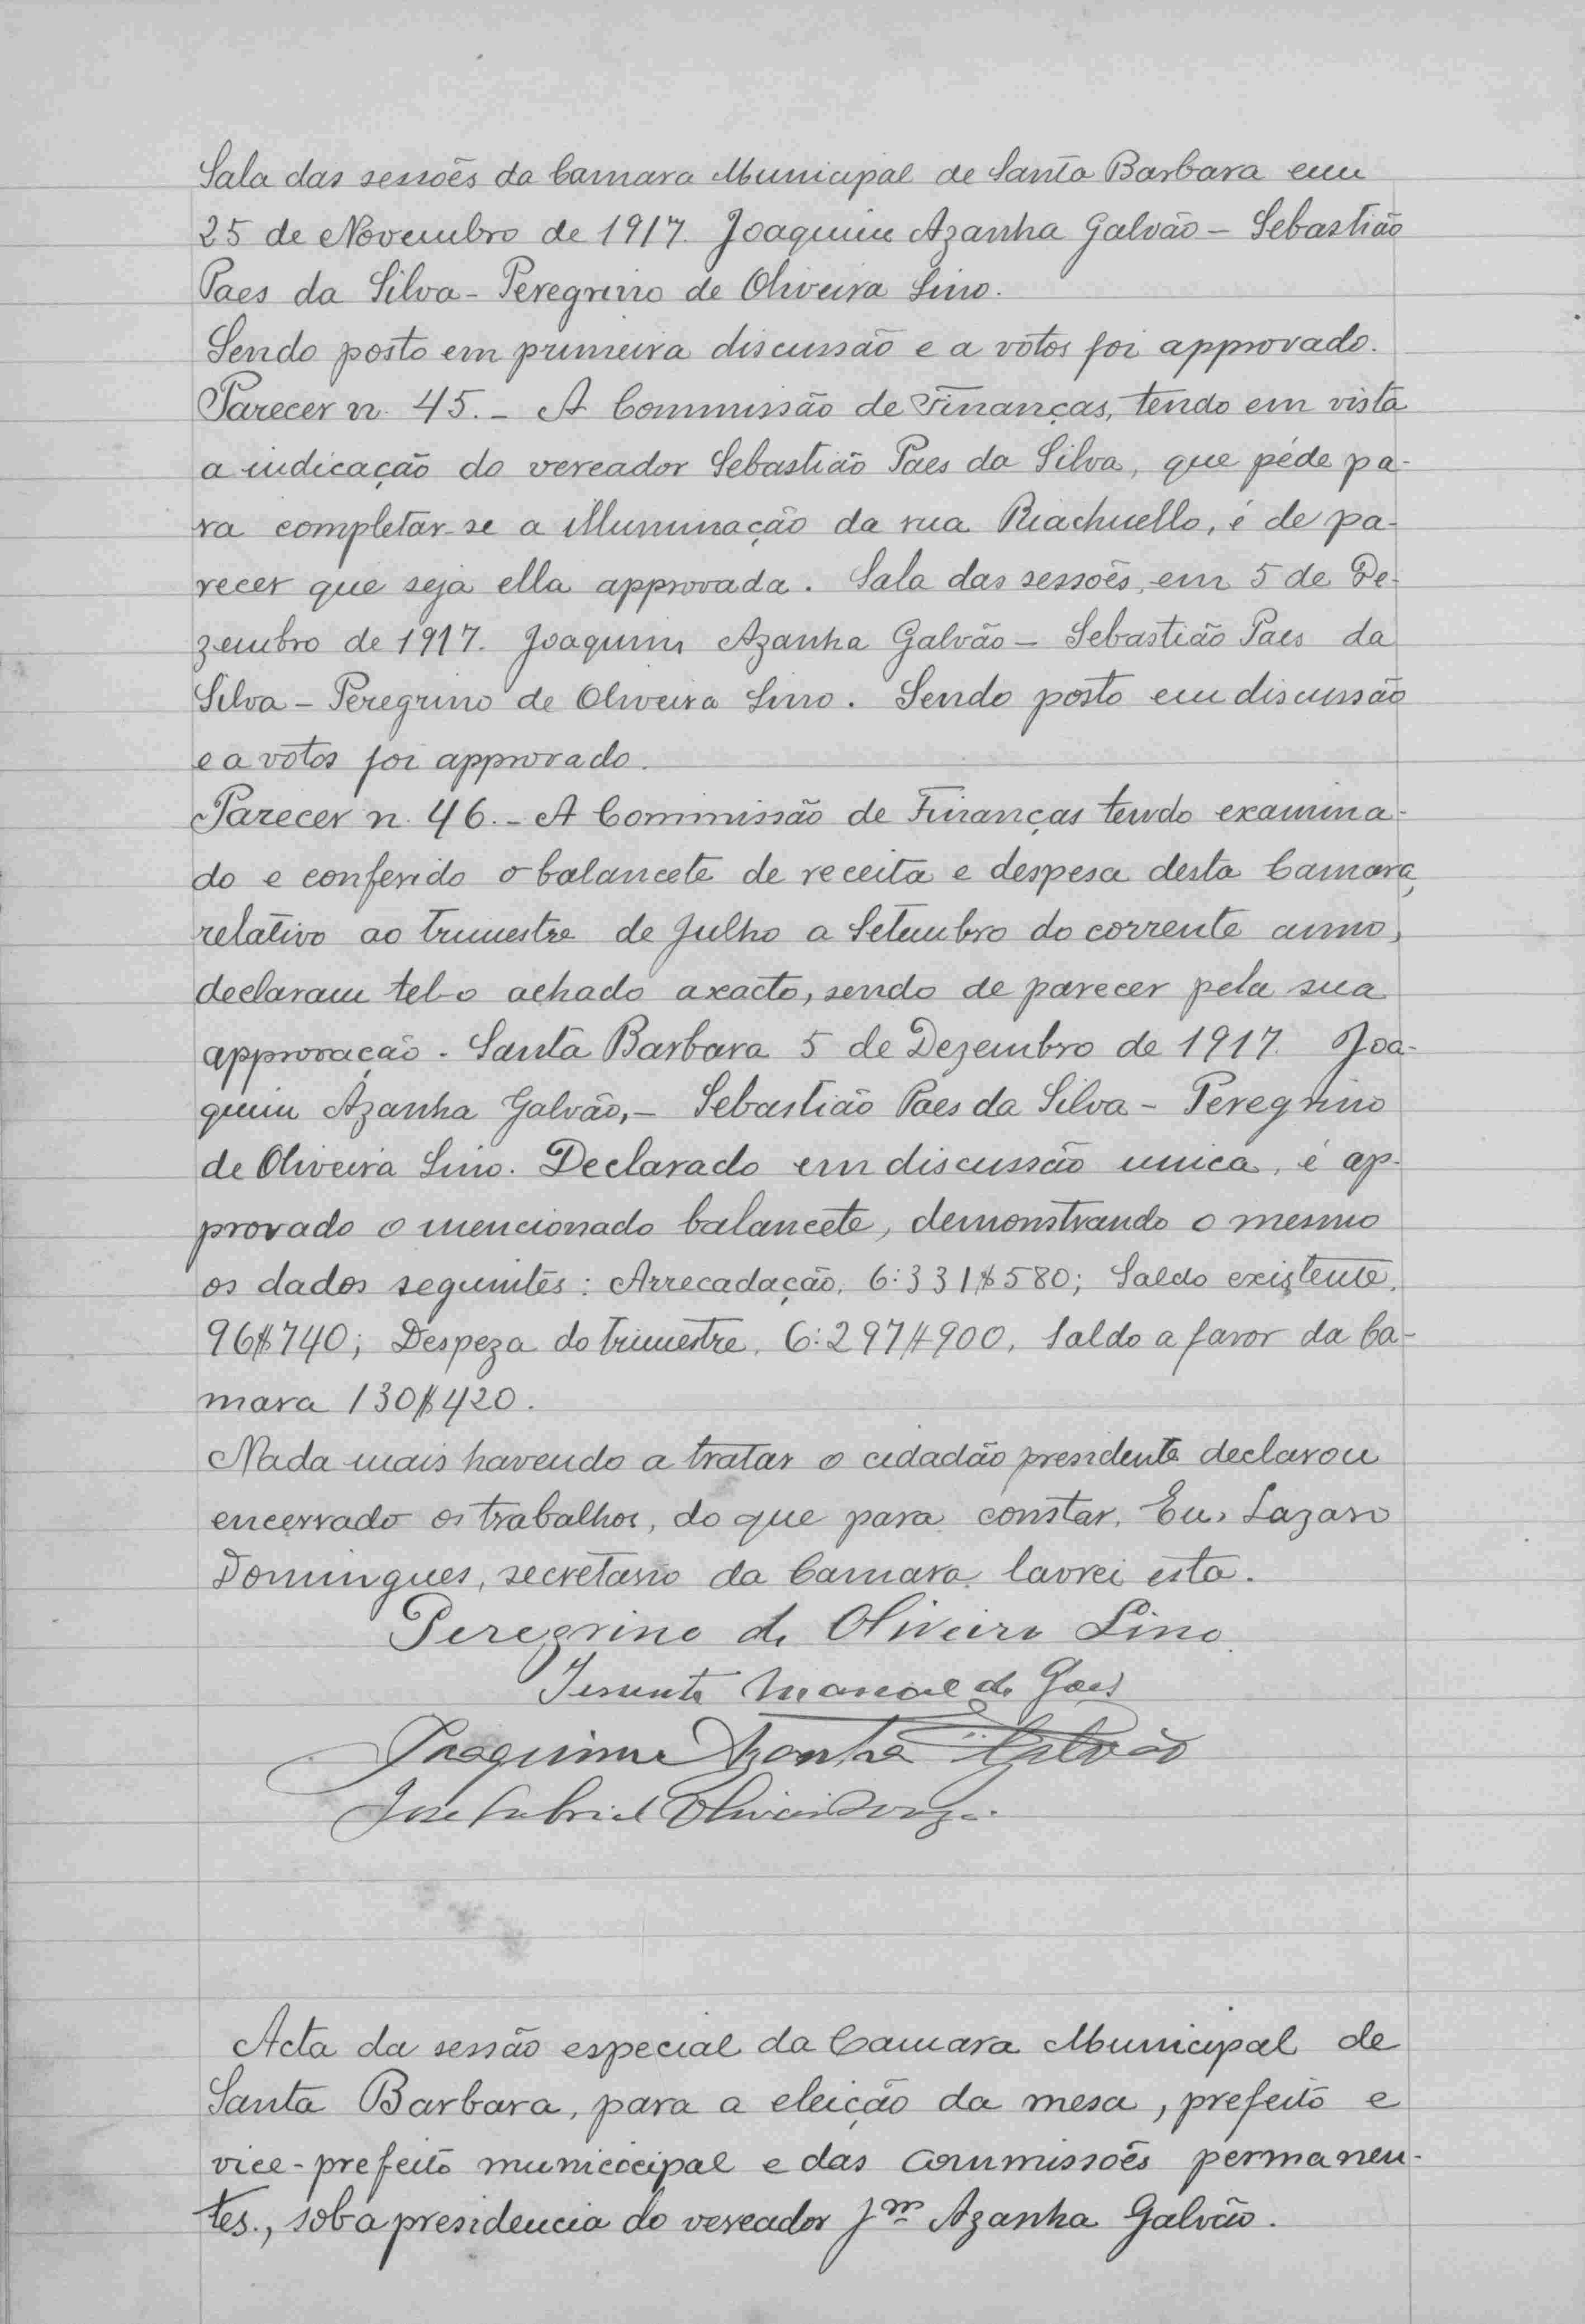 Sala das sessões da Camara Municipal de Santa Barbara em
25 de Novembro de 1917. Joaquim Azanha Galvão – Sebastião
Paes da Silva – Peregrino de Oliveira Lino.
Sendo posto em primeira discussão e a votos foi approvado.
Parecer n. 45. – A Commissão de Finanças, tendo em vista
a indicação do vereador Sebastião Paes da Silva, que péde pa-
ra completar-se a illuminação da rua Riachuello, é de pa-
recer que seja ella approvada. Sala das sessões, em 5 de De-
zembro de 1917. Joaquim Azanha Galvão – Sebastião Paes da
Silva – Peregrino de Oliveira Lino. Sendo posto em discussão
e a votos foi approvado.
Parecer n. 46. – A Commissão de Finanças tendo examina-
do e conferido o balancete de receita e despesa desta Camara,
relativo ao trimestre de Julho a Setembro do corrente anno,
declaram tel-o achado axacto, sendo de parecer pela sua
approvação. Santa Barbara 5 de Dezembro de 1917. Joa-
quim Azanha Galvão, – Sebastião Paes da Silva – Peregrino
de Oliveira Lino. Declarado em discussão unica, é ap-
provado o mencionado balancete, demonstrando o mesmo
os dados seguintes: Arrecadação, 6:331$580; Saldo existente,
96$740; Despeza do trimestre, 6:297$900, Saldo a favor da Ca-
mara 130$420.
Nada mais havendo a tratar o cidadão presidente declarou
encerrado os trabalhos, do que para constar, Eu, Lazaro
Domingues, secretario da Camara lavrei esta.
Peregrino de Oliveira Lino
Tenente Manoel de Goes
Joaquim Azanha Galvão
José Gabriel Oliveira
Acta da sessão especial da Camara Municipal de
Santa Barbara, para a eleição da mesa, prefeito e
vice-prefeito municicipal e das commissões permanen-
tes., sob a presidencia do vereador Jm Azanha Galvão.